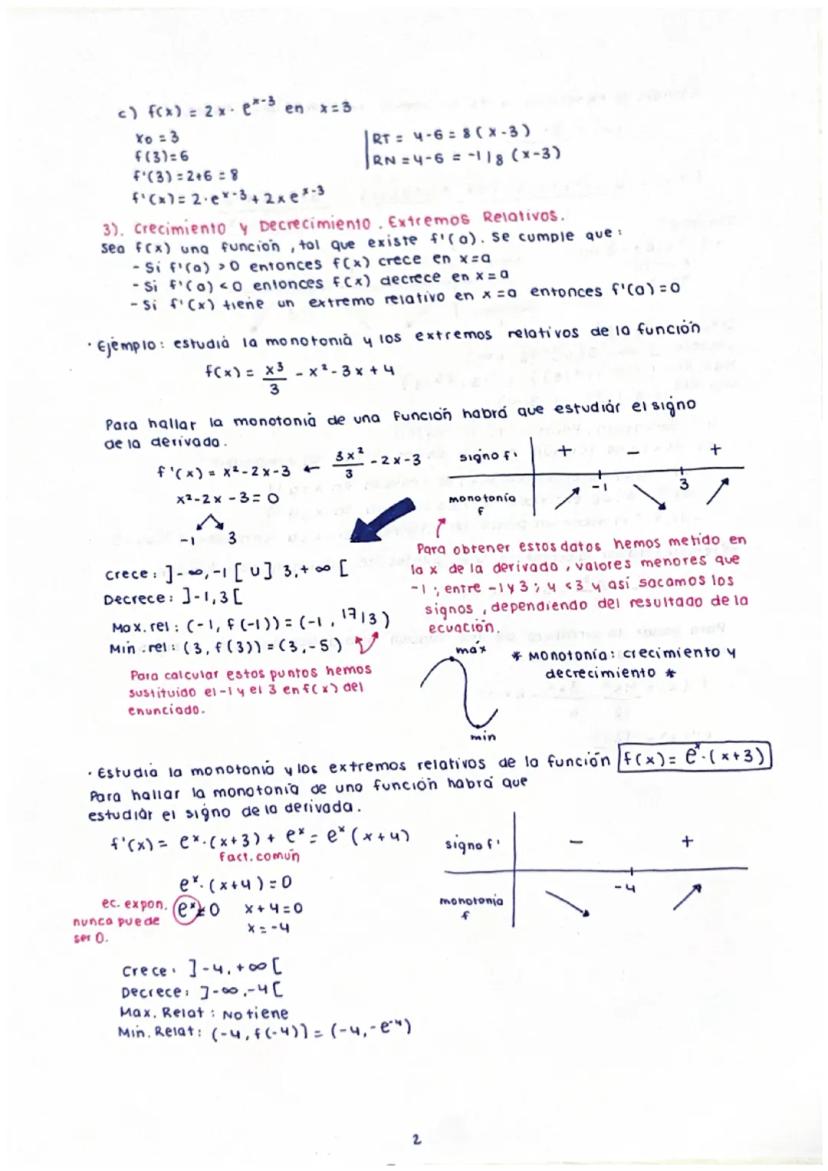 c) f(x) = 2x · e^x-3 en x=3
x0 = 3
f(3)=6
f'(3) = 2+6 = 8
f'(x) = 2·e^x-3 + 2x e^x-3
RT = y-6 = 8(x-3)
RN = y-6 = -1/8 (x-3)
3). Crecimiento y Decrecimiento. Extremos Relativos.
Sea f(x) una función, tal que existe f'(a). Se cumple que:
- Si f'(a) > 0 entonces f(x) crece en x=a
- Si f'(a) < 0 entonces f(x) decrece en x=a
- Si f'(x) tiene un extremo relativo en x=a entonces f'(a)=0
· Ejemplo: estudia la monotonía y los extremos relativos de la función
f(x) = x³/3 - x² - 3x + 4
Para hallar la monotonía de una función habrá que estudiar el signo
de la derivada.
f'(x) = x²-2x-3 ← 3x²/3 - 2x-3
x²-2x-3=0
-1 3
signo f' + - +
-1 3
monotonía
f
Crece: ]-∞,-1[ U ]3,+∞[
Decrece: ]-1,3[
Max. rel: (-1, f(-1)) = (-1, 17/3)
Min. rel: (3, f(3)) = (3,-5)
Para calcular estos puntos hemos
sustituido el -1 y el 3 en f(x) del
enunciado.
Para obtener estos datos hemos metido en
la x de la derivada, valores menores que
-1; entre -1 y 3; y <3 y así sacamos los
signos, dependiendo del resultado de la
ecuación.
máx
min
* Monotonía: crecimiento y
decrecimiento *
· Estudia la monotonía y los extremos relativos de la función f(x) = e^x · (x+3)
Para hallar la monotonía de una función habrá que
estudiar el signo de la derivada.
f'(x) = e^x·(x+3) + e^x = e^x (x+4)
fact. común
e^x · (x+4) = 0
ec. expon.
nunca puede
ser 0.
e^x≠0 x+4=0
x=-4
signo f' - +
-4
monotonía
f
Crece: ]-4,+∞[
Decrece: ]-∞,-4[
Max. Relat: No tiene
Min. Relat: (-4, f(-4)) = (-4, -e^-4)
2